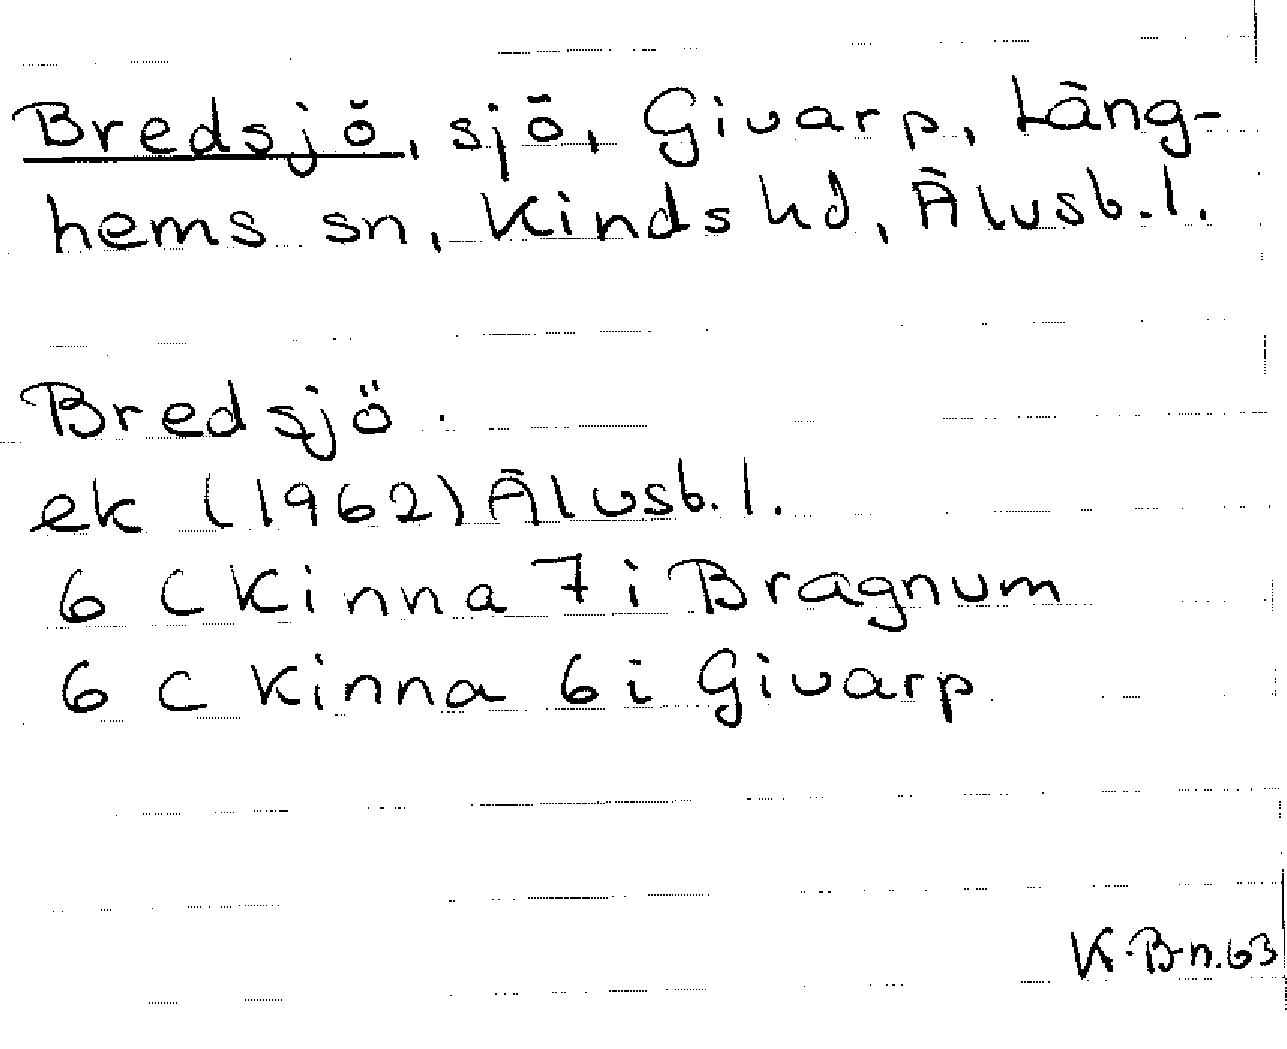 Bredsjö, sjö, Givarp, Läng-
hems sn, Kinds hd, Älvsb. l.
Bredsjö.
ek (1962) Älvsb. l.
6 C Kinna 7 i Bragnum
6 C Kinna 6 i Givarp
K-B-n.63